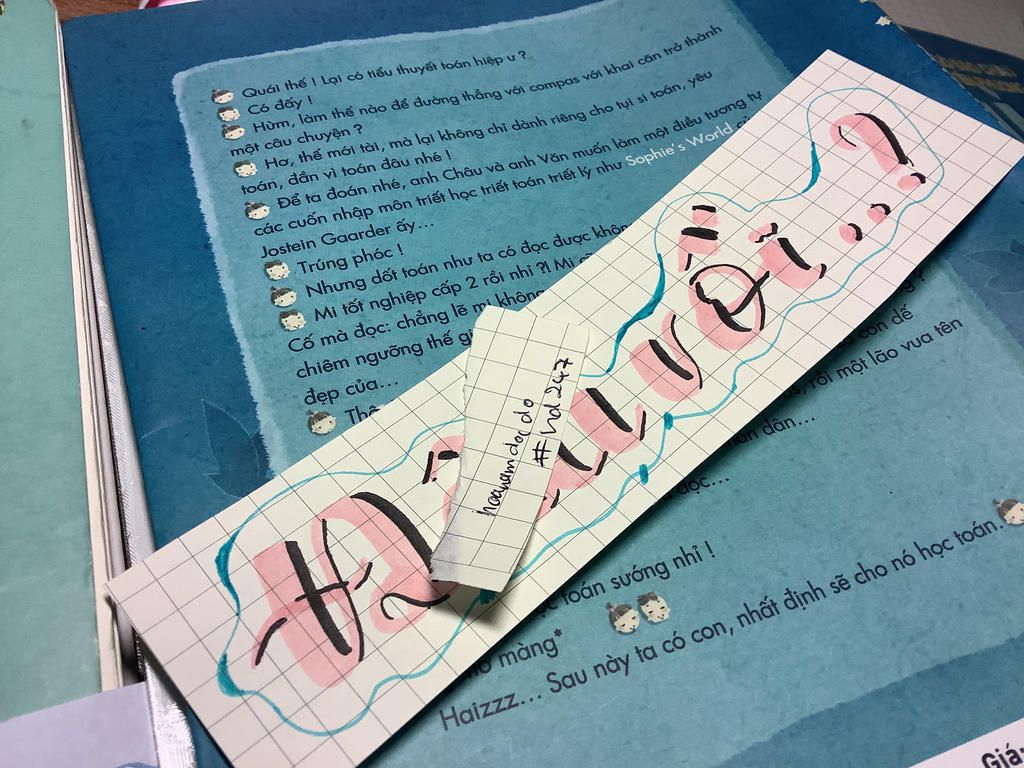 Quái thế ! Lại có tiểu thuyết toán hiệp ư ?
Có đấy !
Hừm, làm thế nào để đường thẳng với compas với khai căn trở thành
một câu chuyện ?
Hơ, thế mới tài, mà lại không chỉ dành riêng cho tụi si toán, yêu
toán, đần vì toán đâu nhé !
Để ta đoán nhé, anh Châu và anh Văn muốn làm một điều tương tự
các cuốn nhập môn triết học triết toán triết lý như Sophie's World
Jostein Gaarder ấy...
Trúng phóc !
Nhưng dốt toán như ta có đọc được
Mi tốt nghiệp cấp 2 rồi nhỉ ?! Mi
Cố mà đọc: chẳng lẽ mi không
chiêm ngưỡng thế
đẹp của...
con dế
rồi một lão vua tên
dân...
đọc...
toán sướng nhỉ !
màng*
Haizzz... Sau này ta có con, nhất định sẽ cho nó học toán.
Giá:
hoacnamdocdo
#hd247